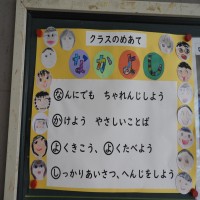 クラスのめあて
なかよし
なんにでも ちゃれんじしよう
かけよう やさしいことば
よくきこう、よくたべよう
しっかりあいさつ、へんじをしよう